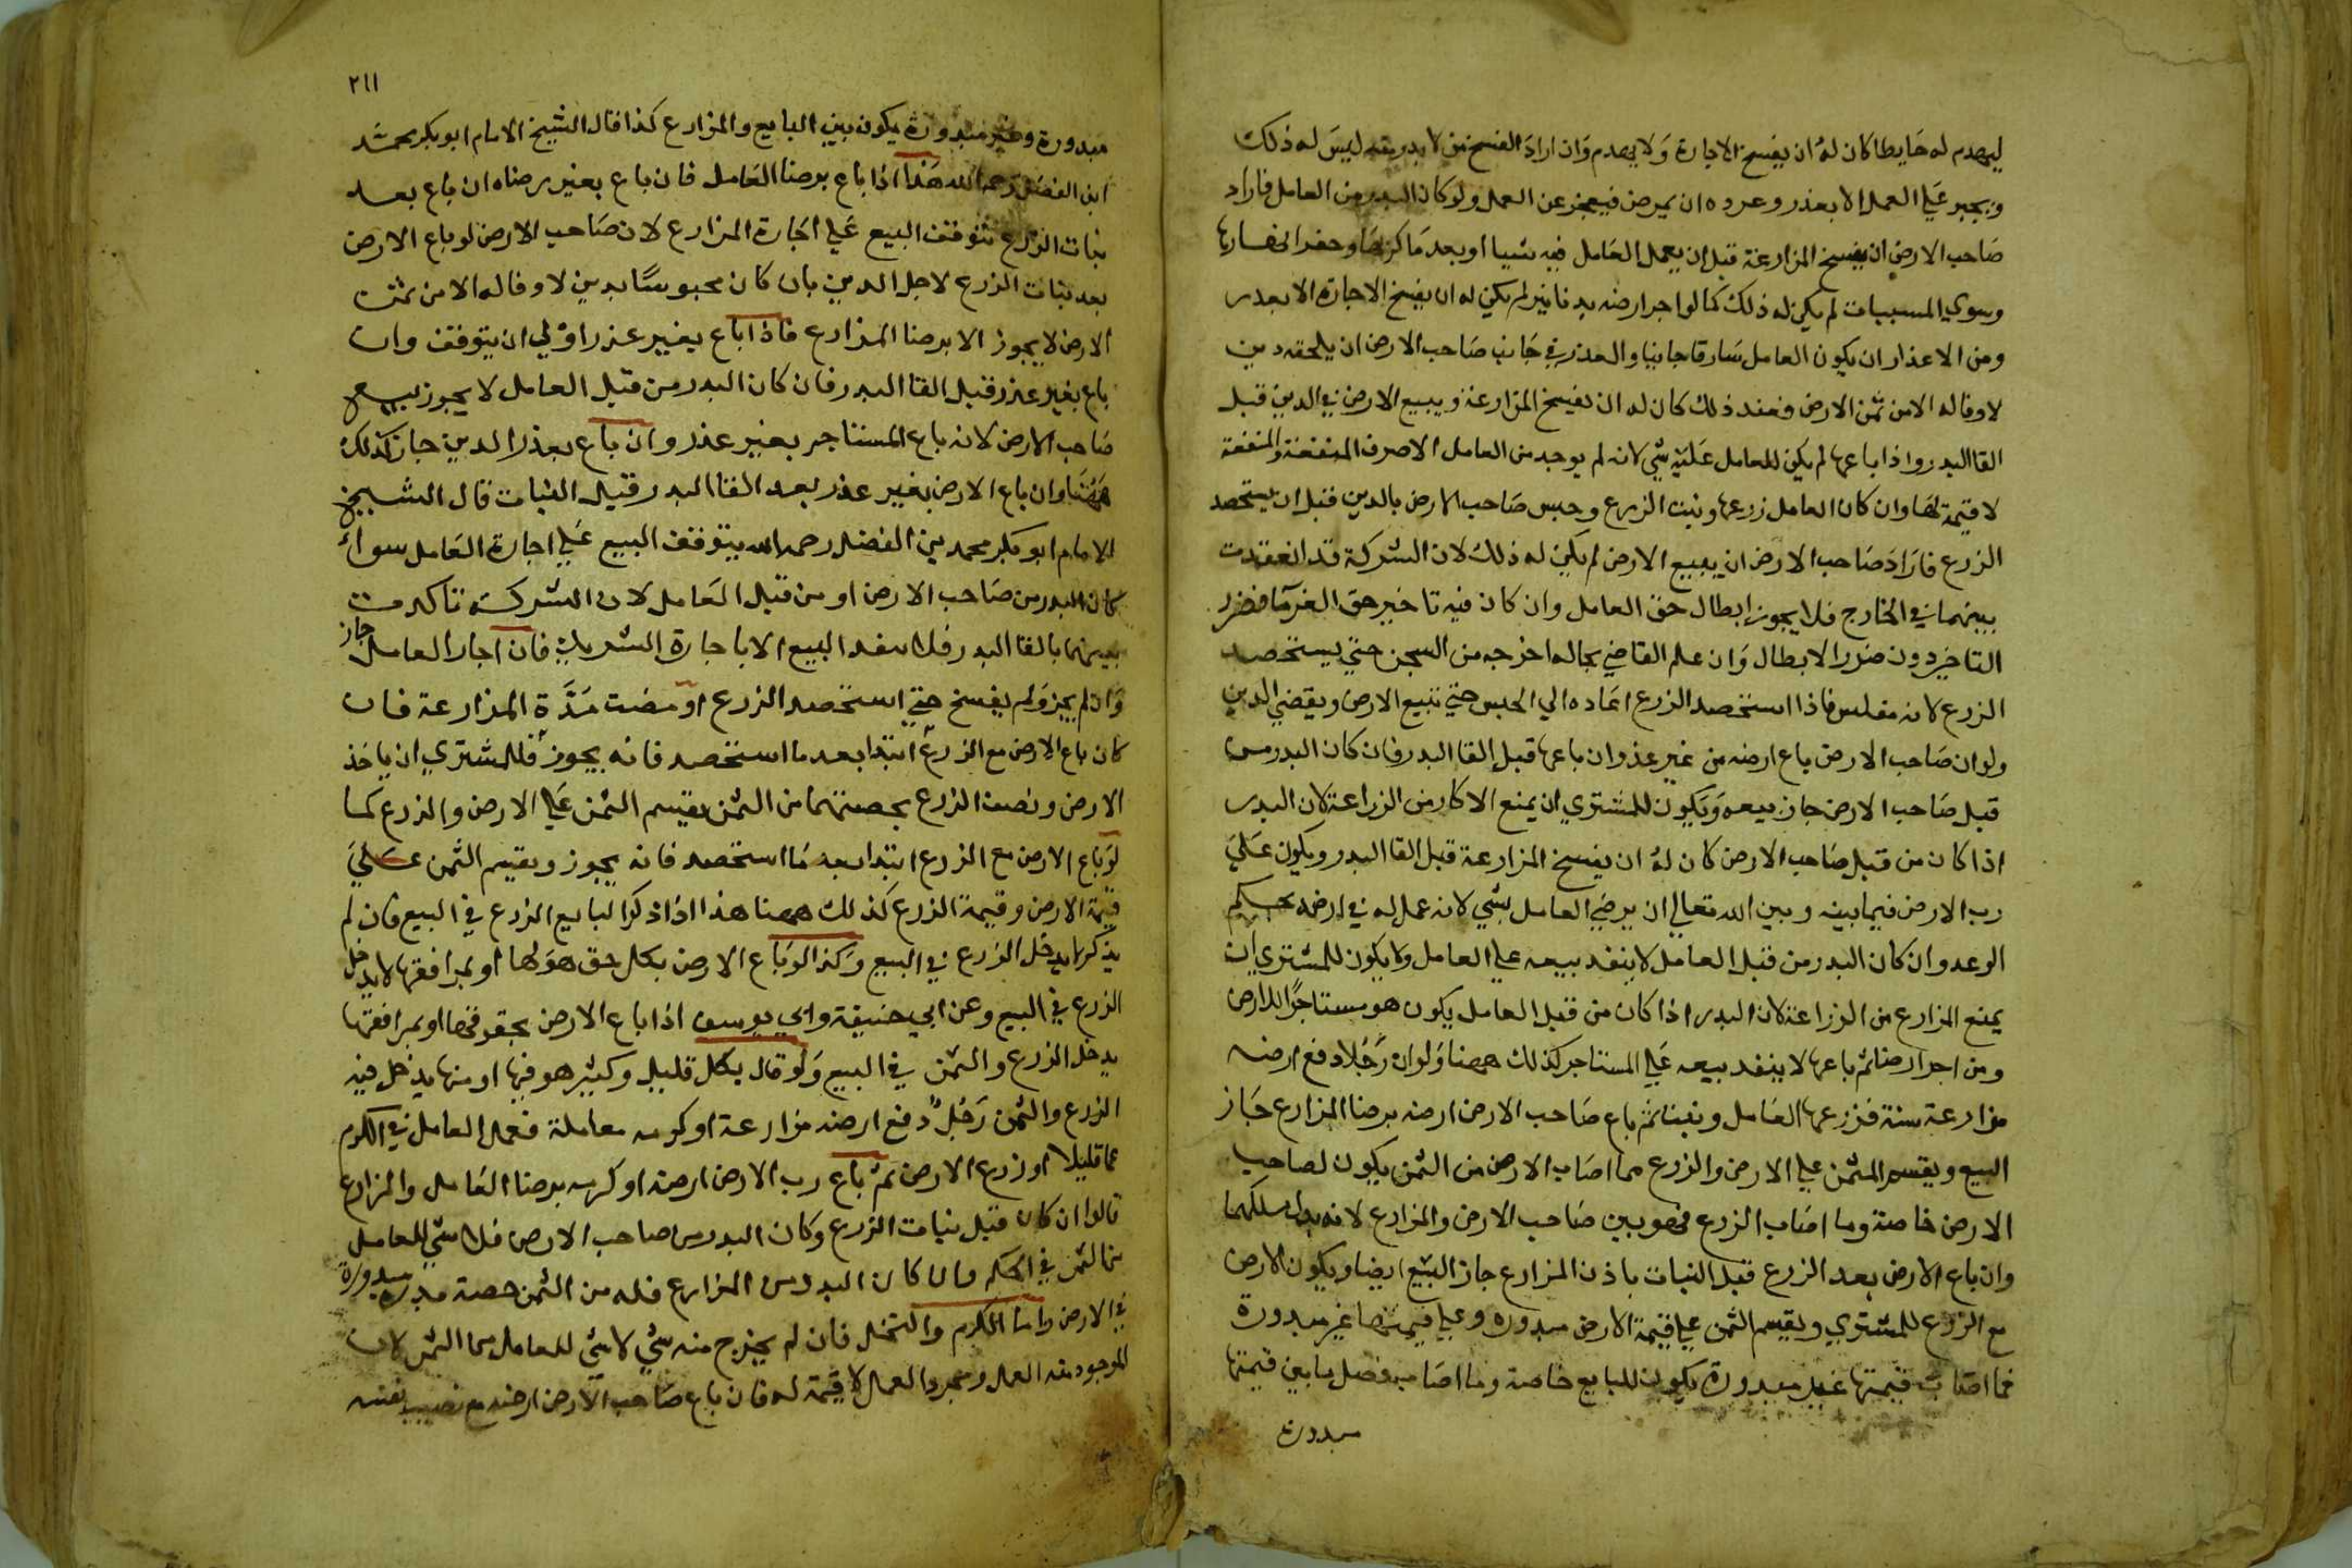 ليهدم له حايطا كان له ان يفسخ الاجارة ولا يهدم وان اراد الفسخ من لا بدر منه ليس له ذلك
ويجبر علي العمل الا بعذر وعذره ان يمرض فيعجز عن العمل ولو كان البدر من العامل فاراد
صاحب الارض ان يفسخ المزارعة قبل ان يعمل العامل فيه شيا او بعد ما كربها وحفر انهارها
وسوي المسنيات لم يكن له ذلك كما لو اجر ارضه بدنانير لم يكن له ان يفسخ الاجارة الا بعدر
ومن الاعذار ان يكون العامل سارقا جانيا والعذر في جانب صاحب الارض ان يلحقه دين
لا وفا له الا من ثمن الارض فعند ذلك كان له ان يفسخ المزارعة ويبيع الارض في الدين قبل
القا البدر واذا باعها لم يكن للعامل عليه شي لانه لم يوجد من العامل الا صرف المنفعة والمنفعة
لا قيمة لها وان كان العامل زرعها ونبت الزرع وحبس صاحب الارض بالدين قبل ان يستحصد
الزرع فاراد صاحب الارض ان يبيع الارض لم يكن له ذلك لان الشركة قد انعقدت
بينهما في الخارج فلا يجوز ابطال حق العامل وان كان فيه تاخير حق الغرما فضرر
التاخير دون ضرر الابطال وان علم القاضي بحاله اخرجه من السجن حتي يستحصد
الزرع لانه مفلس فاذا استحصد الزرع اعاده الي الحبس حتي تبيع الارض ويقضي الدين
ولو ان صاحب الارض باع ارضه من غير عذر وان باعها قبل القا البدر فان كان البدر من
قبل صاحب الارض جاز بيعه ويكون للمشتري ان يمنع الاكار من الزراعة لان البدر
اذا كان من قبل صاحب الارض كان له ان يفسخ المزارعة قبل القا البدر ويكون علي
رب الارض فيما بينه وبين الله تعالي ان يرضي العامل بشي لانه عمل له في ارضه بحكم
الوعد وان كان البدر من قبل العامل لا ينفد بيعه علي العامل ولا يكون للمشتري ان
يمنع المزارع من الزراعة لان البدر اذا كان من قبل العامل يكون هو مستاجرا للارض
ومن اجر ارضا ثم باعها لا ينفد بيعه علي المستاجر كذلك ههنا ولو ان رجلا دفع ارضه
مزارعة سنة فزرعها العامل ونبتا ثم باع صاحب الارض ارضه برضا المزارع جاز
البيع ويقسم الثمن علي الارض والزرع مما اصاب الارض من الثمن يكون لصاحب
الارض خاصة وما اصاب الزرع فهو بين صاحب الارض والمزارع لانه بدل ملكهما
وان باع الارض بعد الزرع قبل النبات باذن المزارع جاز البيع ايضا ويكون الارض
مع الزرع للمشتري ويقسم الثمن علي قيمة الارض مبدورة وعلي قيمتها غير مبدورة
فما اصاب قيمتها غير مبدورة يكون للبايع خاصة وما اصاب فضل ما بين قيمتها
مبدورة
٢١١
مبدورة وغير مبدورة يكون بين البايع والمزارع كذا قال الشيخ الامام ابو بكر محمد
ابن الفضل رحمه الله هذا اذا باع برضا العامل فان باع بغير رضاه ان باع بعد
نبات الزرع تتوقف البيع علي اجارة المزارع لان صاحب الارض لو باع الارض
بعد نبات الزرع لاجل الدين بان كان محبوسا بدين لا وفا له الا من ثمن
الارض لا يجوز الا برضا المزارع فاذا باع بغير عذر اولي ان يتوقف وان
باع بغير عذر قبل القا البدر فان كان البدر من قبل العامل لا يجوز بيع
صاحب الارض لانه باع المستاجر بغير عذر وان باع بعذر الدين جاز كذلك
ههنا وان باع الارض بغير عذر بعد القا البدر قبل النبات قال الشيخ
الامام ابو بكر محمد بن الفضل رحمه الله يتوقف البيع علي اجارة العامل سواء
كان البدر من صاحب الارض او من قبل العامل لان الشركة تاكدت
بينهما بالقا البدر فلا ينفد البيع الا باجارة الشريك فان اجار العامل جاز
وان لم يجز ولم يفسخ حتي استحصد الزرع او مضت مدة المزارعة فان
كان باع الارض مع الزرع ابتدا بعد ما استحصد فانه يجوز فللمشتري ان ياخذ
الارض ونصف الزرع بحصتهما من الثمن يقسم الثمن علي الارض والزرع كما
لو باع الارض مع الزرع ابتدا بعد ما استحصد فانه يجوز ويقسم الثمن علي
قيمة الارض وقيمة الزرع كذلك ههنا هذا اذا ذكر البايع الزرع في البيع فان لم
يذكر لا يدخل الزرع في البيع وكذا لو باع الارض بكل حق هو لها او بمرافقها لا يدخل
الزرع في البيع وعن ابي حنيفة وابي يوسف اذا باع الارض بحقوقها او بمرافقها
يدخل الزرع والثمن في البيع ولو قال بكل قليل وكثير هو فيها او منها يدخل فيه
الزرع والثمن رجل دفع ارضه مزارعة او كرمه معاملة فعمل العامل في الكرم
عملا قليلا او زرع الارض ثم باع رب الارض ارضه او كرمه برضا العامل والمزارع
قالوا ان كان قبل نبات الزرع وكان البدر من صاحب الارض فلا شي للعامل
من الثمن في الحكم وان كان البدر من المزارع فله من الثمن حصة مبدورة
في الارض واما الكرم والنخل فان لم يخرج منه شي لا شي للعامل من الثمن لان
الموجود منه العمل ومجرد العمل لا قيمة له فان باع صاحب الارض ارضه مع نصيب نفسه